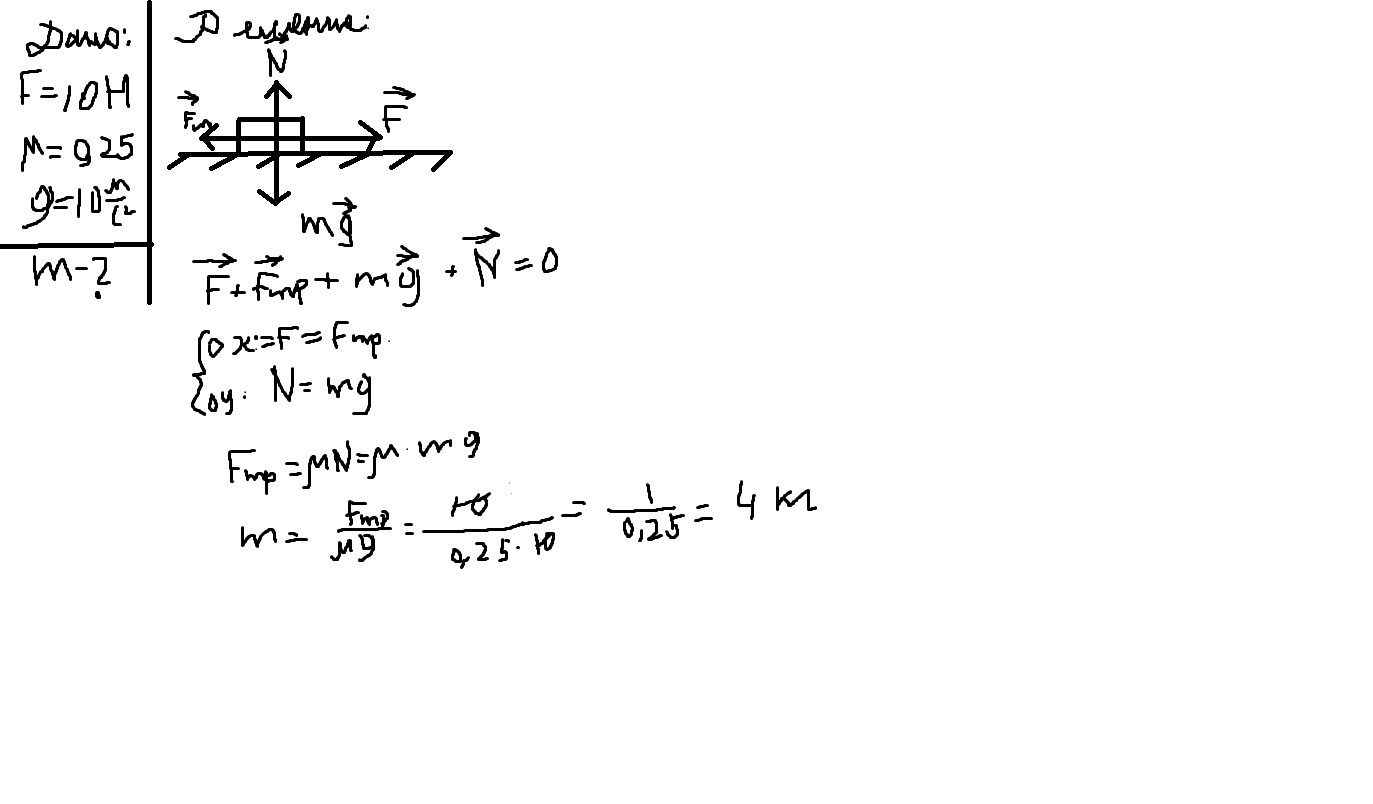 Дано:
F=10Н
μ=0,25
g=10 м/с²
m-?
Решение:
N
Fтр
F
mg
F+Fтр+mg+N=0
Ox:=F=Fтр.
oy: N=mg
Fтр=μN=μ·mg
m=Fтр/μg=10/0,25·10=1/0,25=4 кг